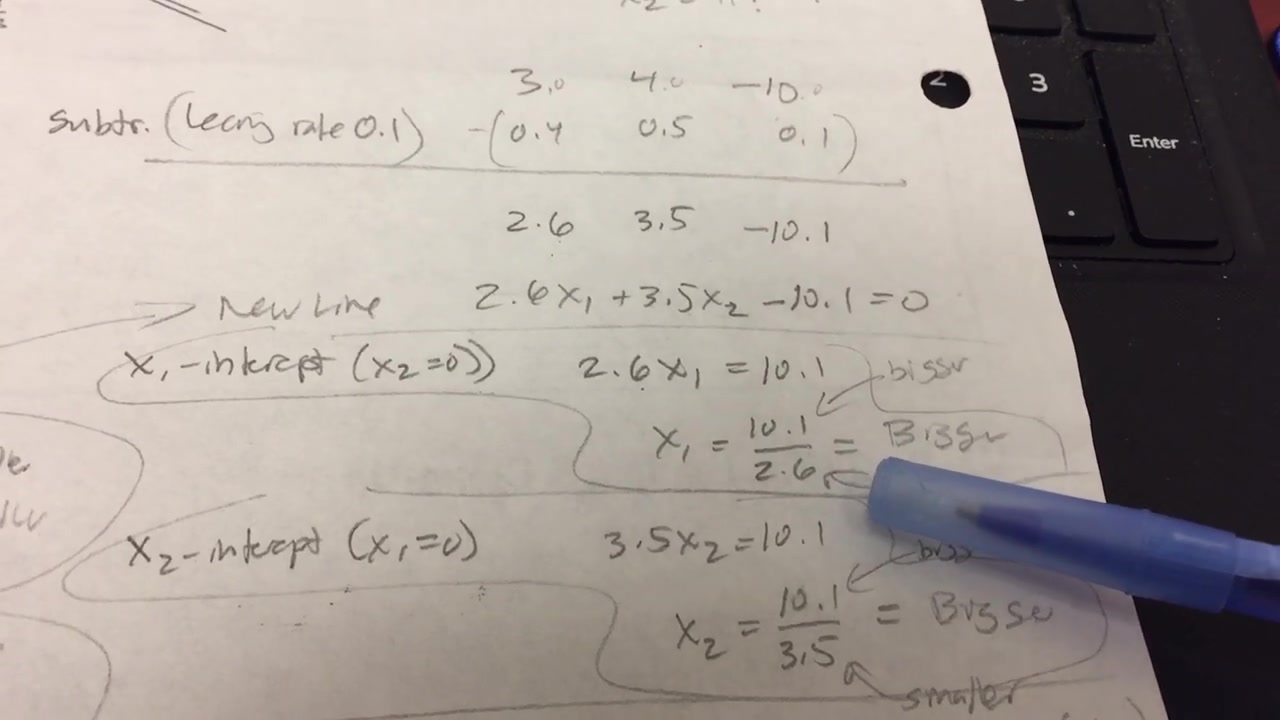 3.0 4.0 -10.0
Subtr. (Learnig rate 0.1) -(0.4 0.5 0.1)
2.6 3.5 -10.1
New Line 2.6x₁ + 3.5x₂ - 10.1 = 0
x₁-intercept (x₂=0) 2.6x₁ = 10.1
bigger
x₁ = 10.1/2.6 = Bigger
x₂-intercept (x₁=0) 3.5x₂ = 10.1
x₂ = 10.1/3.5 = Bigger
smaller
2
3
Enter
.